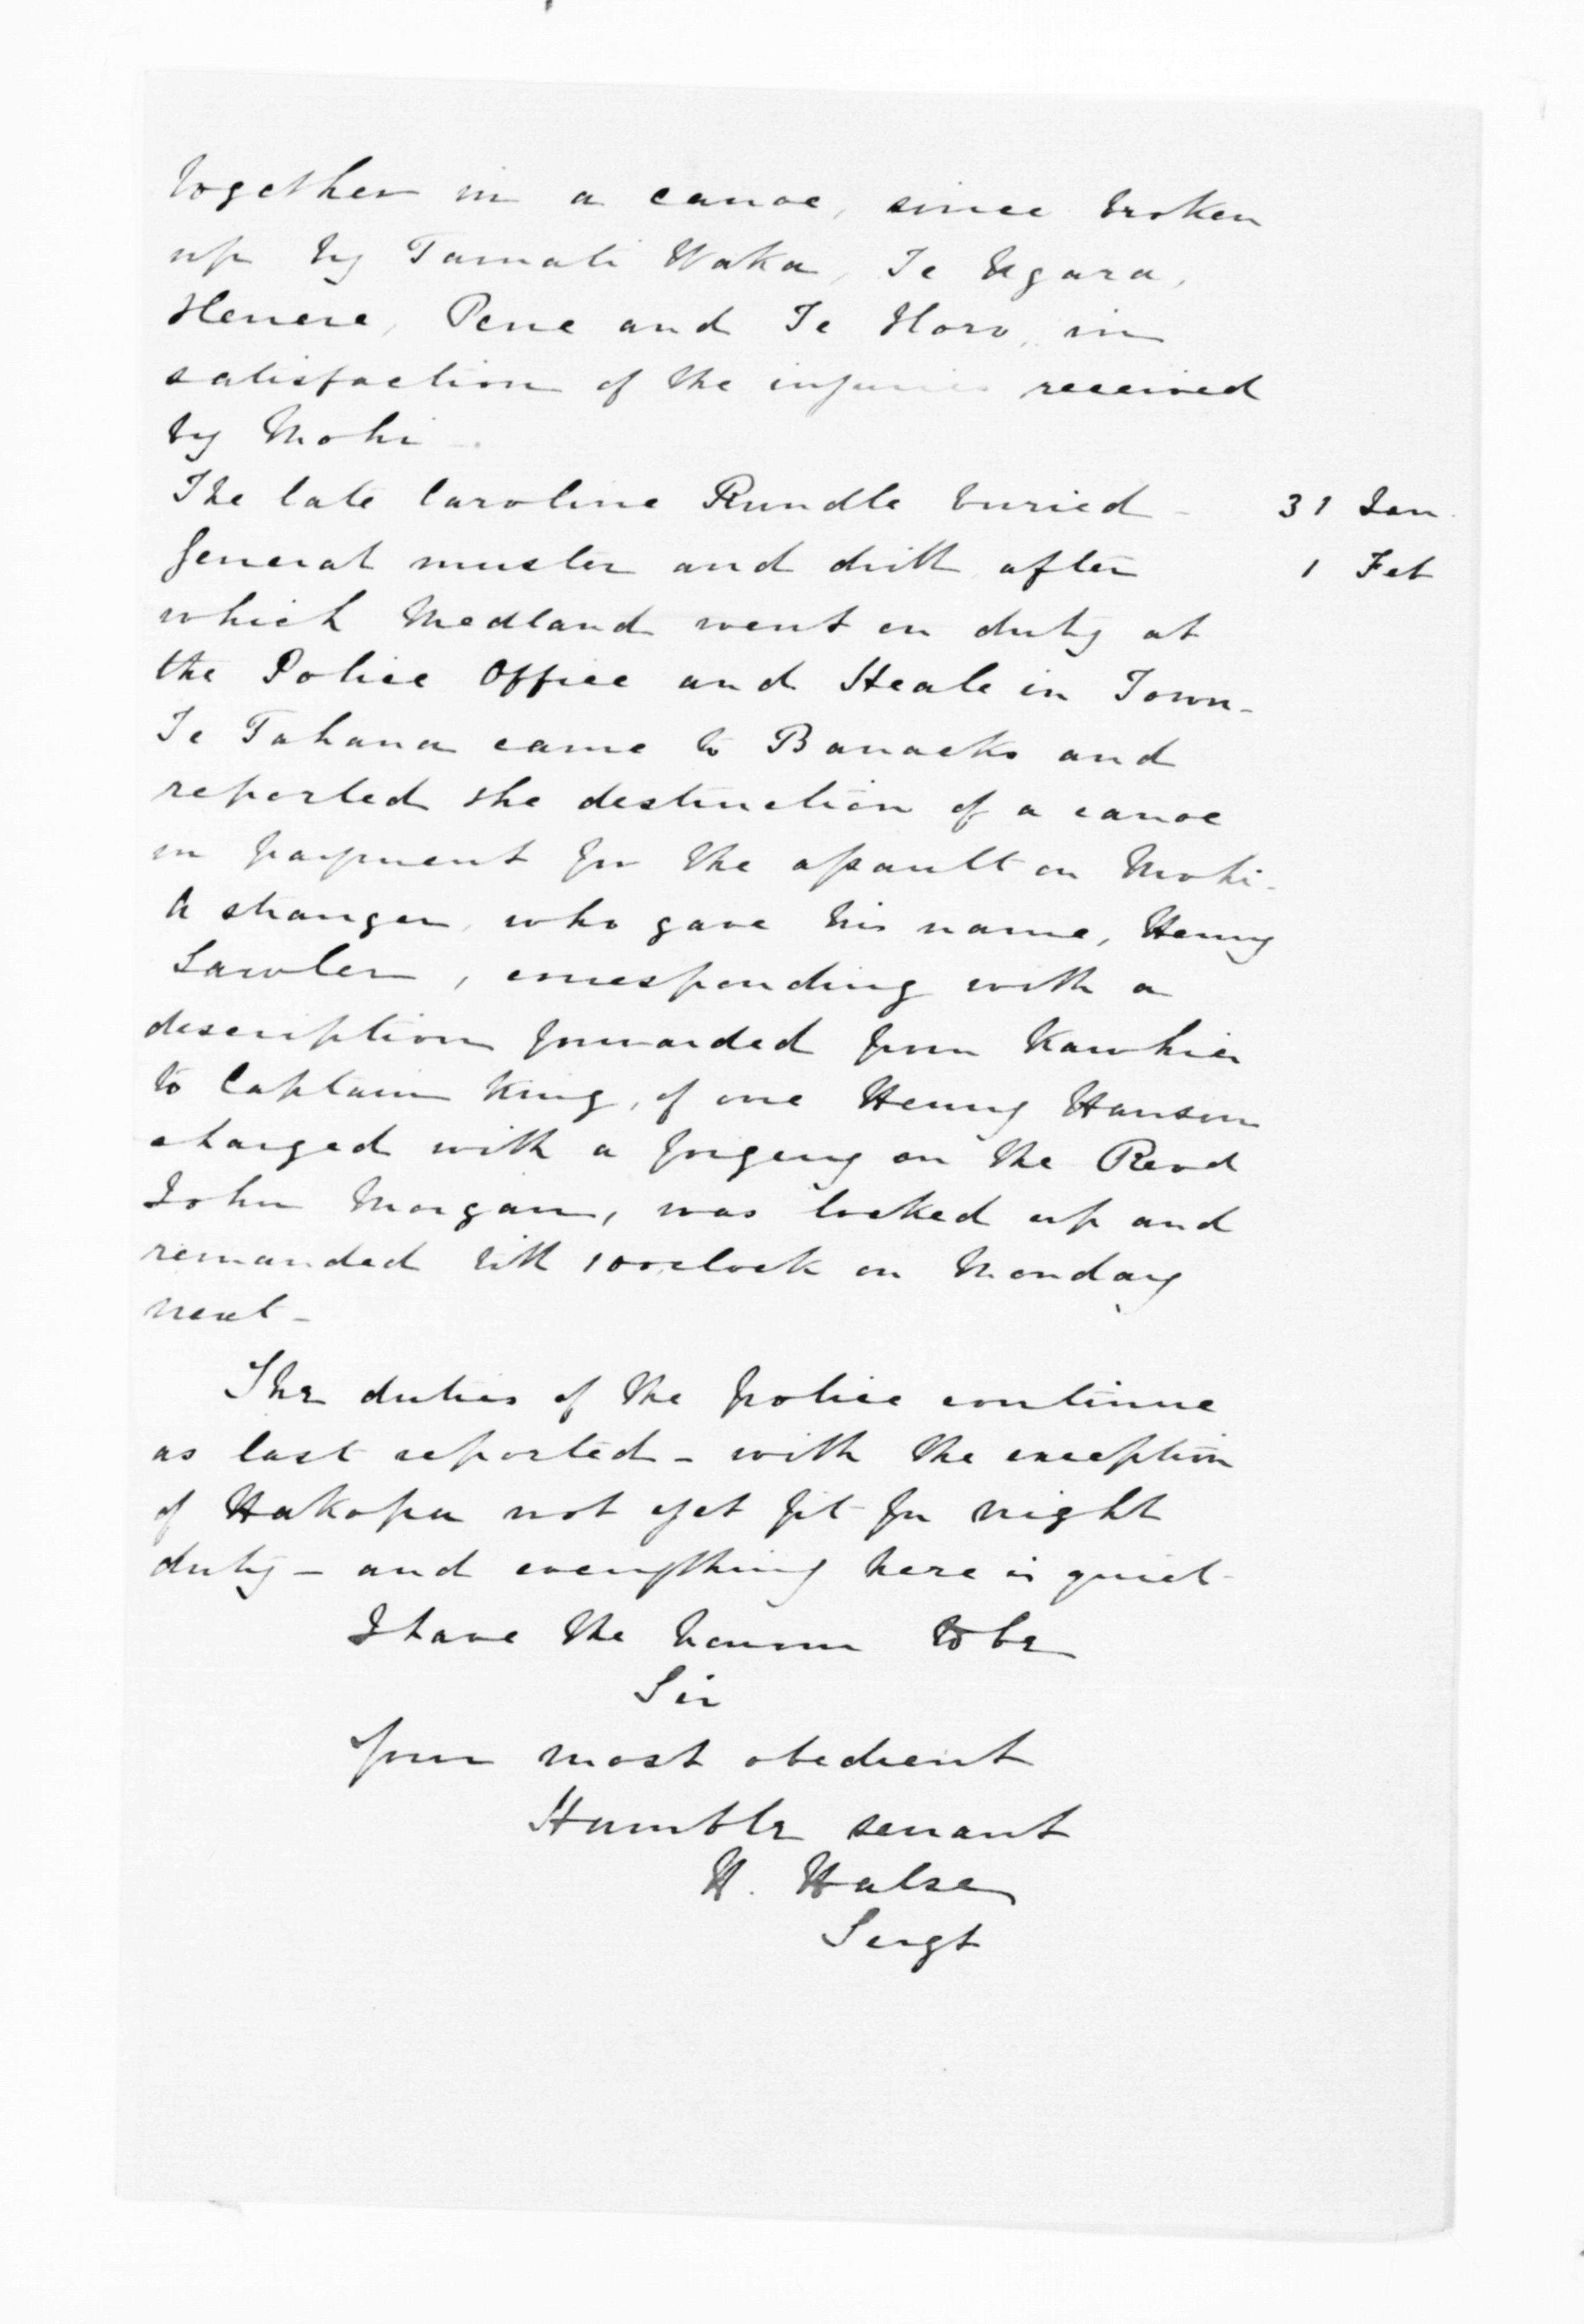 together in a canoe, since broken
up by Tamati Waka, Te Ngara,
Henere, Pene and Te Horo, in
satisfaction of the injuries received
by Mohi -
The late Caroline Rundle buried - 31 Jan.
General muster and drill after 1 Feb
which Medland went on duty at
the Police Office and Heale in Town -
Te Tahana came to Banacks and
reported the destruction of a canoe
in payment for the assault on Mohi -
A stranger, who gave his name, Henry
Lawler, corresponding with a
description forwarded from Kawhia
to Captain King, of one Henry Hanson
charged with a forgery on the Revd
John Morgan, was locked up and
remanded till 10 o'clock on Monday
next -
The duties of the police continue
as last reported - with the exception
of Hakopa not yet fit for night
duty - and everything here is quiet -
I have the honor to be
Sir
Your most obedient
Humble servant
H. Halse
Sergt